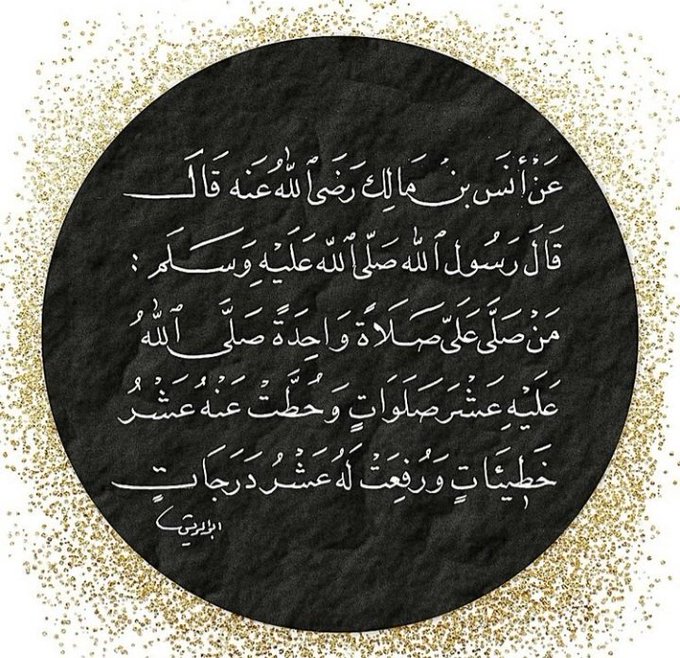 عَنْ أَنَس بن مَالِك رَضَي ٱللهُ عَنه قَالَ
قَالَ رَسُول ٱلله صَلّى ٱلله عَلَيْهِ وَسَلَم :
مَنْ صَلَّى عَلَيَّ صَلَاةً وَاحِدَةً صَلَّى ٱللهُ
عَلَيْهِ عَشْرَ صَلَوَاتٍ وَحُطَّتْ عَنْهُ عَشْرُ
خَطِيئَاتٍ وَرُفِعَتْ لَهُ عَشْرُ دَرَجَاتٍ